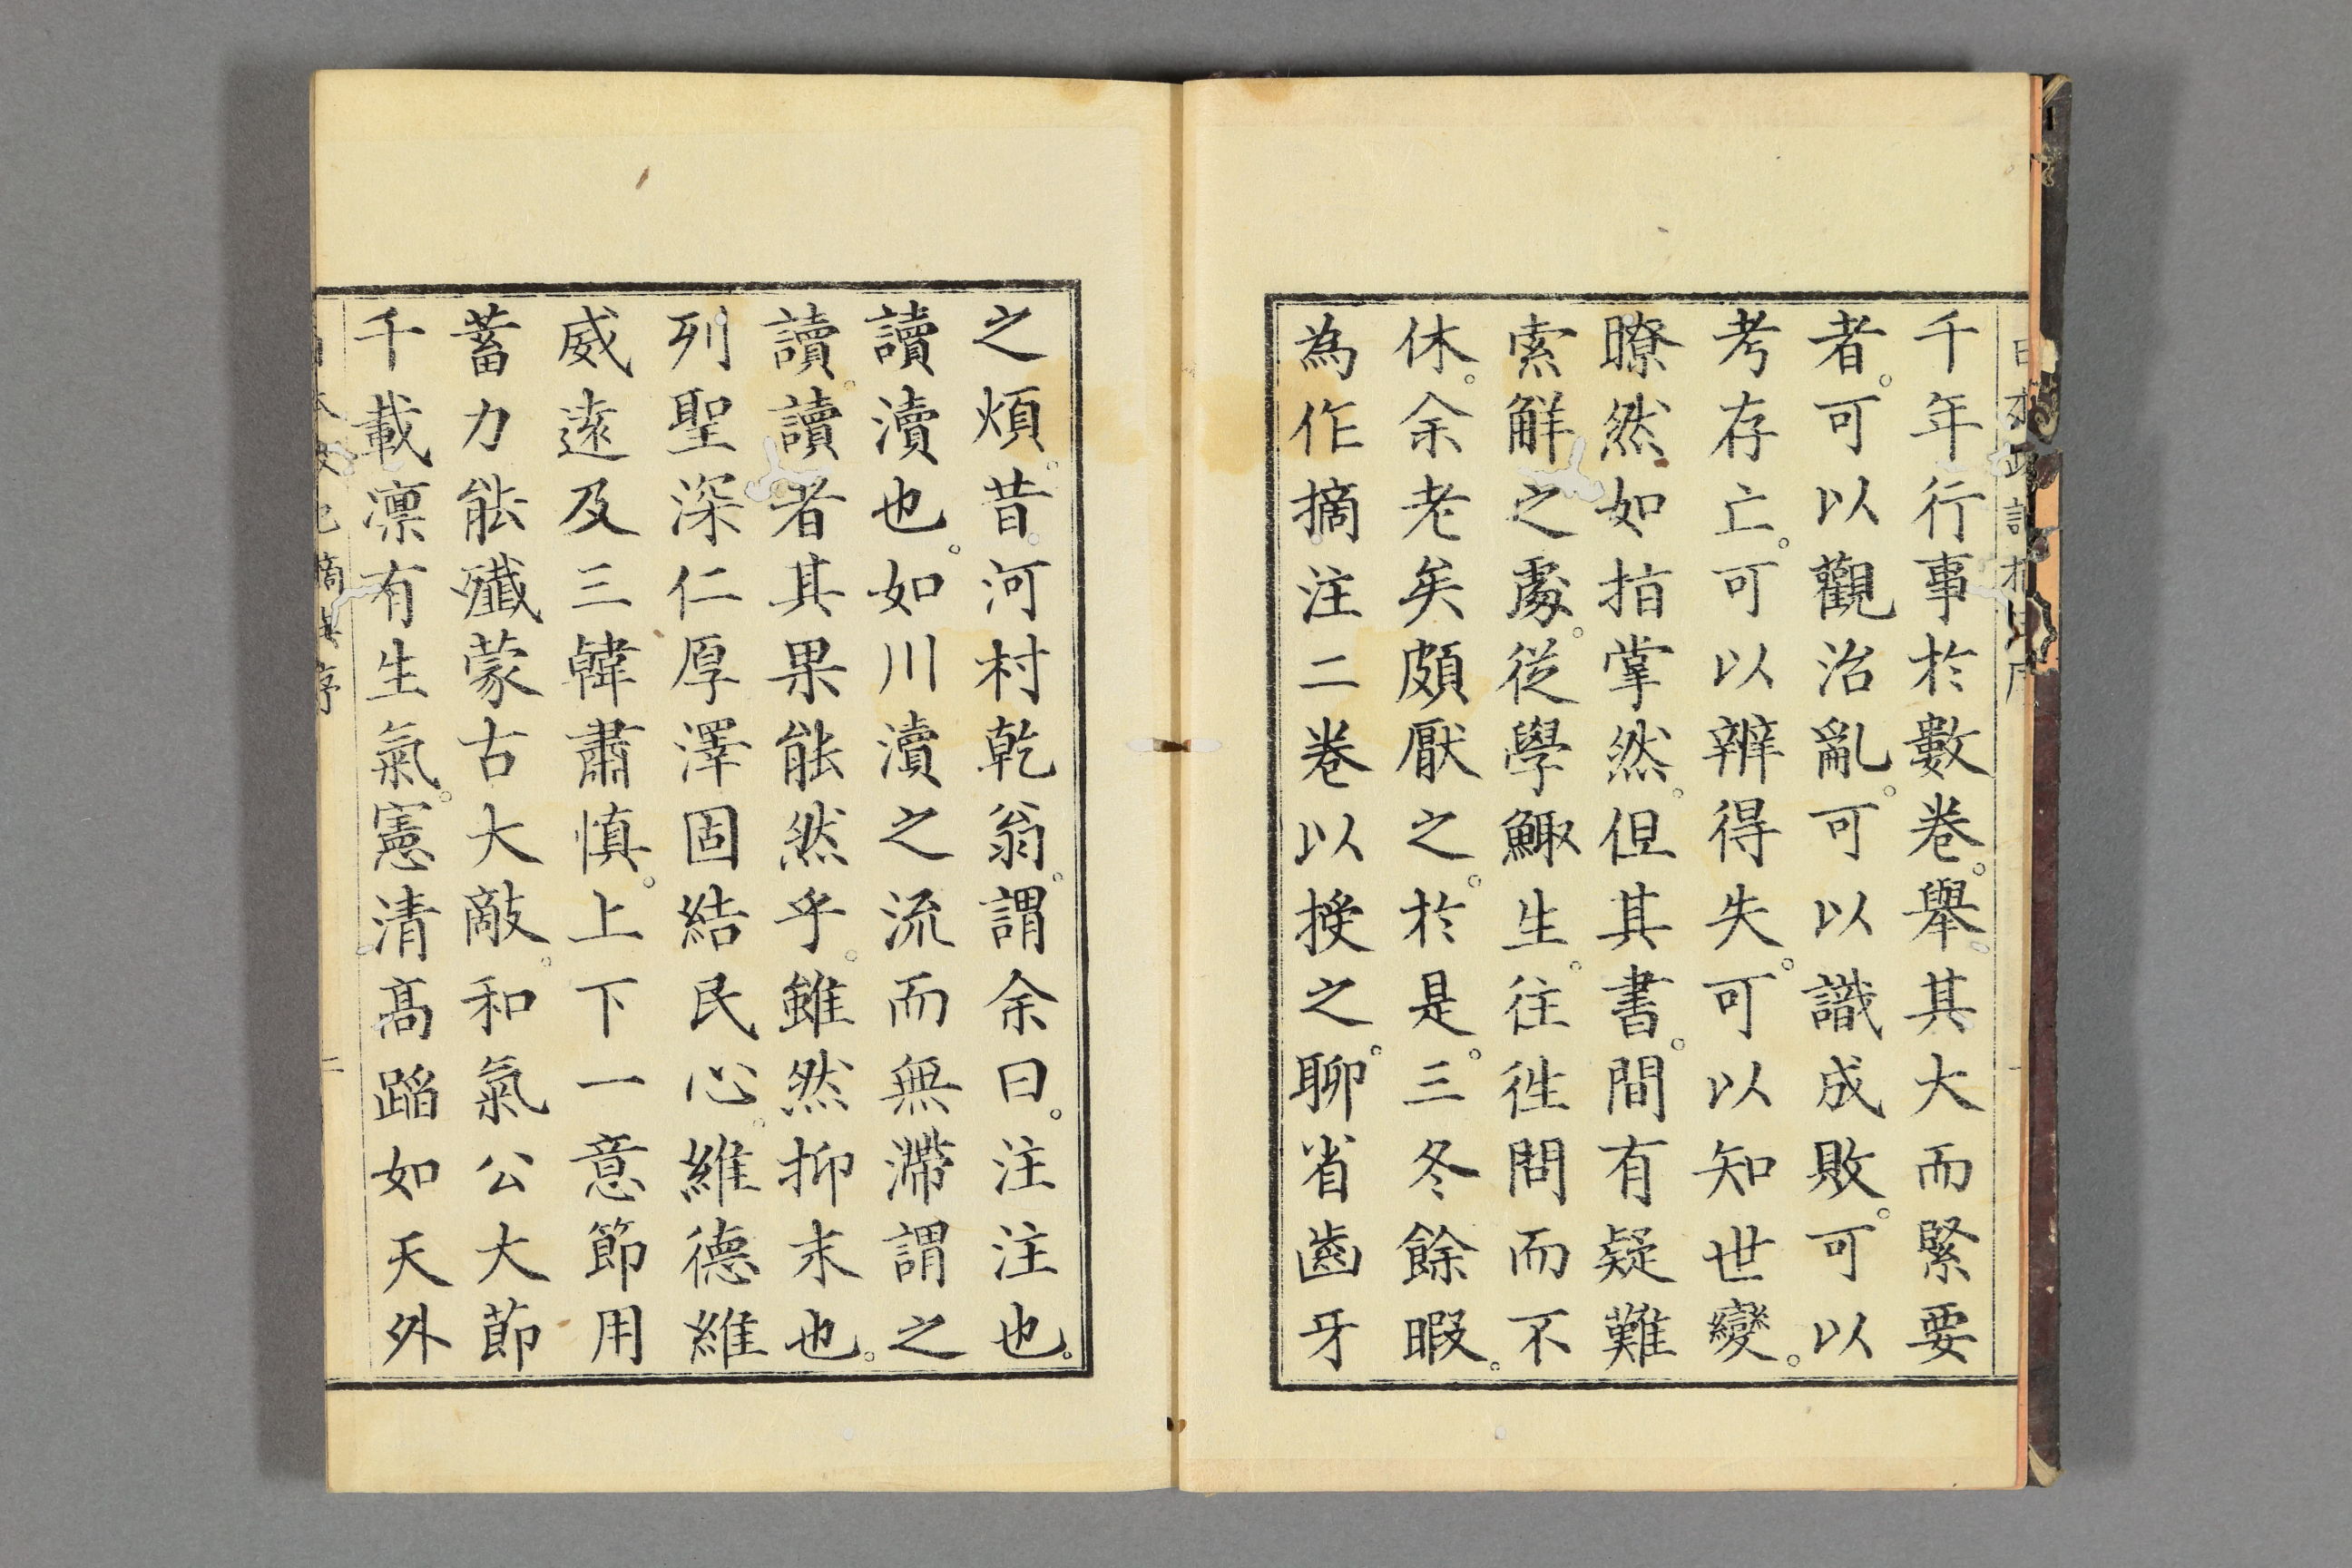 千年行事於數卷。舉。其大而緊要
者。可以觀治亂。可以識成敗。可以
考存亡。可以辨得失。可以知世變。
瞭然如指掌然。但其書。間有疑難
索解之處。從學鯫生。往徃問而不
休。余老矣頗厭之。於是。三冬餘暇。
為作摘注二卷以授之。聊省齒牙
之煩。昔。河村乾翁。謂余曰。注注也。
讀瀆也。如川瀆之流而無滯謂之
讀。讀者其果能然乎。雖然抑末也。
列聖深仁厚澤固結民心。維德維
威遠及三韓肅慎。上下一意節用
蓄力能殱蒙古大敵。和氣公大節
千載凛有生氣。憲清高蹈如天外